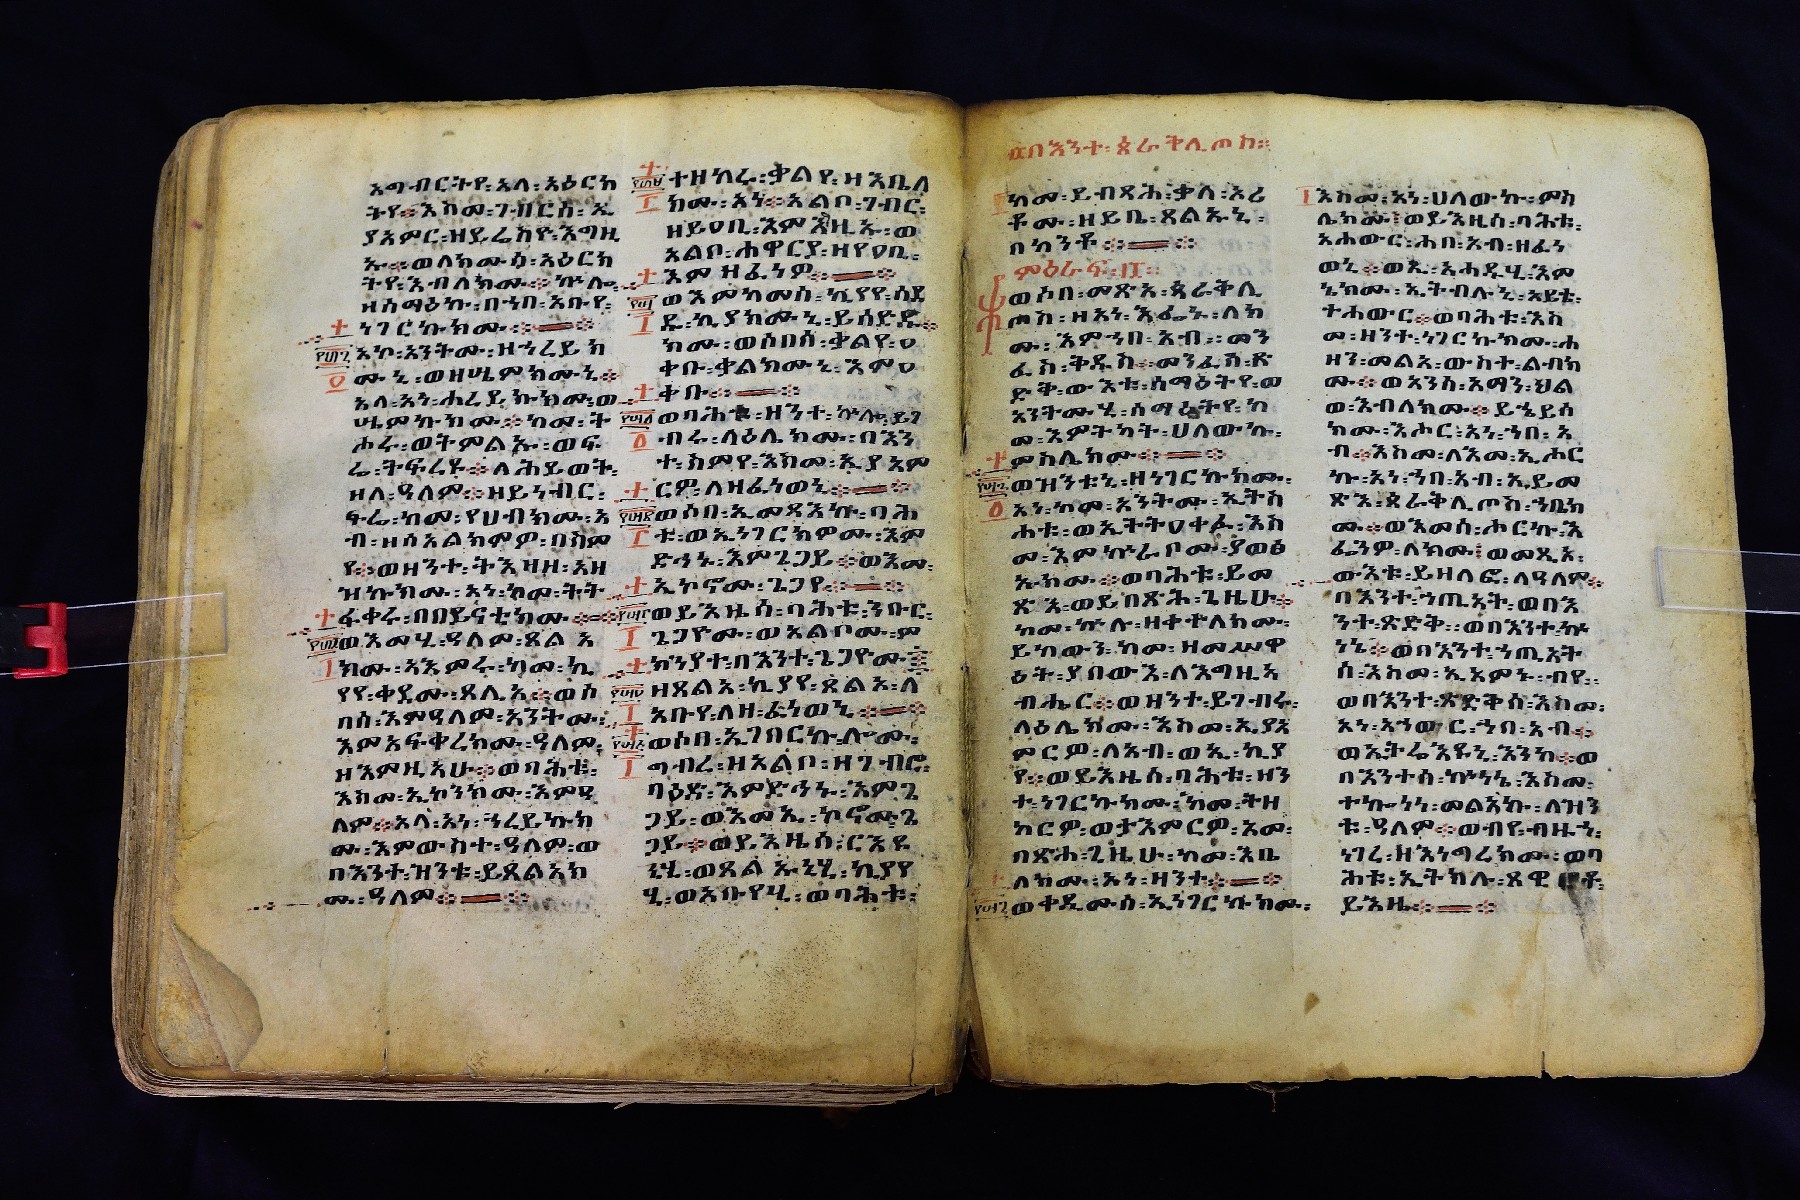 አግብርትየ፡አላ፡አዕርክ
ትየ፡እስመ፡ገብርሰ፡ኢ
ያአምር፡ዘይሬስዮ፡እግዚ
ኡ፡ወለክሙሰ፡አዕርክ
ትየ፡እብለክሙ፡ኵሎ፡
ዘሰማዕኩ፡በኀበ፡አቡየ፡
ነገርኩክሙ።
አኮ፡አንትሙ፡ዘኀረይክ
ሙኒ፡ወዘሤምክሙኒ።
አላ፡አነ፡ሐረይኩክሙ፡ወ
ሤምኩክሙ።ከመ፡ት
ሖሩ፡ወትምልኡ፡ወፍ
ሬ፡ትፍረዩ።ለሕይወት፡
ዘለ፡ዓለም።ዘይነብር፡
ፍሬ፡ከመ፡የሀብክሙ፡አ
ብ፡ዘሰአልክምዎ፡በስም
የ።ወዘንተ፡ትእዛዘ፡አዘ
ዝኩክሙ፡አነ፡ከመ፡ትት
ፋቀሩ፡በበይናቲክሙ።
ወእመሂ፡ዓለም፡ጸልአ
ክሙ፡አእምሩ፡ከመ፡ኪ
ያየ፡ቀደሙ፡ጸሊአ።ወሶ
በሰ፡እምዓለም፡አንትሙ፡
እምአፍቀረክሙ፡ዓለም፡
ዘእምዚአሁ።ወባሕቱ፡
እስመ፡ኢኮንክሙ፡እምዓ
ለም።አላ፡አነ፡ኀረይኩክ
ሙ፡እምውስተ፡ዓለም፡ወ
በእንተ፡ዝንቱ፡ይጸልአክ
ሙ፡ዓለም።
ተዘከሩ፡ቃልየ፡ዘእቤለ
ክሙ፡አነ።አልቦ፡ገብር፡
ዘይዐቢ፡እምእግዚኡ፡ወ
አልቦ፡ሐዋርያ፡ዘየዐቢ፡
እምዘፈነዎ።
ወእምከመሰ፡ኪያየ፡ሰደ
ዱ፡ኪያክሙኒ፡ይሰድዱ
ክሙ፡ወሶበሰ፡ቃልየ፡ዐ
ቀቡ፡ቃልክሙኒ፡እምዐ
ቀቡ።
ወባሕቱ፡ዘንተ፡ኵሎ፡ይገ
ብሩ፡ላዕሌክሙ፡በእን
ተ፡ስምየ፡እስመ፡ኢያአም
ርዎ፡ለዘፈነወኒ።
ወሶበ፡ኢመጻእኩ፡ባሕ
ቱ፡ወኢነገርክዎሙ፡እም
ድኅኑ፡እምጌጋይ።ወእመ፡
ኢኮኖሙ፡ጌጋየ።
ወይእዜሰ፡ባሕቱ፡ንቡር፡
ጌጋዮሙ፡ወአልቦሙ፡ም
ክንያተ፡በእንተ፡ጌጋዮሙ።
ዘጸልአ፡ኪያየ፡ጸልአ፡ለ
አቡየ፡ለዘ፡ፈነወኒ።
ወሶበ፡ኢገበርኩ፡ሎሙ፡
ግብረ፡ዘአልቦ፡ዘገብሮ፡
ባዕድ፡እምድኅኑ፡እምጌ
ጋይ፡ወእመ፡ኢኮኖሙ፡ጌ
ጋይ።ወይእዜሰ፡ርእዩ
ኒሂ፡ወጸልኡኒሂ፡ኪያየ
ሂ፡ወአቡየሂ፡ወባሕቱ፡
በእንተ፡ጰራቅሊጦስ።
ከመ፡ይብጻሕ፡ቃለ፡ኦሪ
ቶሙ፡ዘይቤ፡ጸልኡኒ፡
በከንቶ።
ምዕራፍ፡
ወሶበ፡መጽአ፡ጰራቅሊ
ጦስ፡ዘአነ፡እፌኑ፡ለክ
ሙ፡እምኀበ፡አብ፡መን
ፈስ፡ቅዱስ።መንፈሰ፡ጽ
ድቅ፡ውእቱ፡ሰማዕትየ፡ወ
አንትሙሂ፡ሰማዕትየ፡ከ
መ፡እምትካት፡ሀለውኩ፡
ምስሌክሙ።
ወዝንቱኒ፡ዘነገርኩክሙ፡
አነ፡ከመ፡አንትሙ፡ኢትስ
ሐቱ፡ወኢትትዐቀፉ፡እስ
መ፡እምኵራቦሙ፡ያወፅ
ኡክሙ።ወባሕቱ፡ይመ
ጽእ፡ወይበጽሕ፡ጊዜሁ።
ከመ፡ኵሉ፡ዘቀተለክሙ፡
ይከውን፡ከመ፡ዘመሥዋ
ዕት፡ያበውእ፡ለእግዚአ
ብሔር።ወዘንተ፡ይገብሩ፡
ላዕሌክሙ፡እስመ፡ኢያአ
ምርዎ፡ለአብ፡ወኢ፡ኪያ
የ።ወይእዜሰ፡ባሕቱ፡ዘን
ተ፡ነገርኩክሙ፡ከመ፡ትዘ
ከርዎ፡ወታእምርዎ፡አመ፡
በጽሐ፡ጊዜሁ፡ከመ፡እቤ
ለክሙ፡አነ፡ዘንተ።
ወቀዲሙሰ፡ኢነገርኩክሙ፡
እስመ፡አነ፡ሀለውኩ፡ምስ
ሌክሙ፡ወይእዜሰ፡ባሕቱ፡
አሐውር፡ሕበ፡አብ፡ዘፈነ
ወኒ።ወኢ፡አሐዱሂ፡እም
ኔክሙ፡ኢትብሉኒ፡አይቴ፡
ተሐውር።ወባሕቱ፡እስ
መ፡ዘንተ፡ነገርኩክሙ፡ሐ
ዘን፡መልአ፡ውስተ፡ልብክ
ሙ።ወአንሰ፡አማን፡ህል
ወ፡እብለክሙ።ይኄይሰ
ክሙ፡እሖር፡አነ፡ኀበ፡አ
ብ።እስመ፡ለእመ፡ኢሖር
ኩ፡አነ፡ኀበ፡አብ፡ኢይመ
ጽእ፡ጰራቅሊጦስ፡ኀቤክ
ሙ።ወእመሰ፡ሖርኩ፡እ
ፌንዎ፡ለክሙ፡ወመጺኦ፡
ውእቱ፡ይዘለፎ፡ለዓለም።
በእንተ፡ኀጢአት፡ወበእ
ንተ፡ጽድቅ፡ወበእንተ፡ኵ
ነኔ።ወበእንተ፡ኀጢአት
ሰ፡እስመ፡ኢአምኑ፡ብየ፡
ወበእንተ፡ጽድቅሰ፡እስመ፡
አነ፡አኀውር፡ኀበ፡አብ።
ወኢትሬእዩኒ፡እንከ።ወ
በእንተሰ፡ኵነኔ፡እስመ፡
ተኰነነ፡መልአኩ፡ለዝን
ቱ፡ዓለም።ወብየ፡ብዙኅ፡
ነገረ፡ዘእነግረክሙ፡ወባ
ሕቱ፡ኢትክሉ፡ጸዊሮቶ፡
ይእዜ።